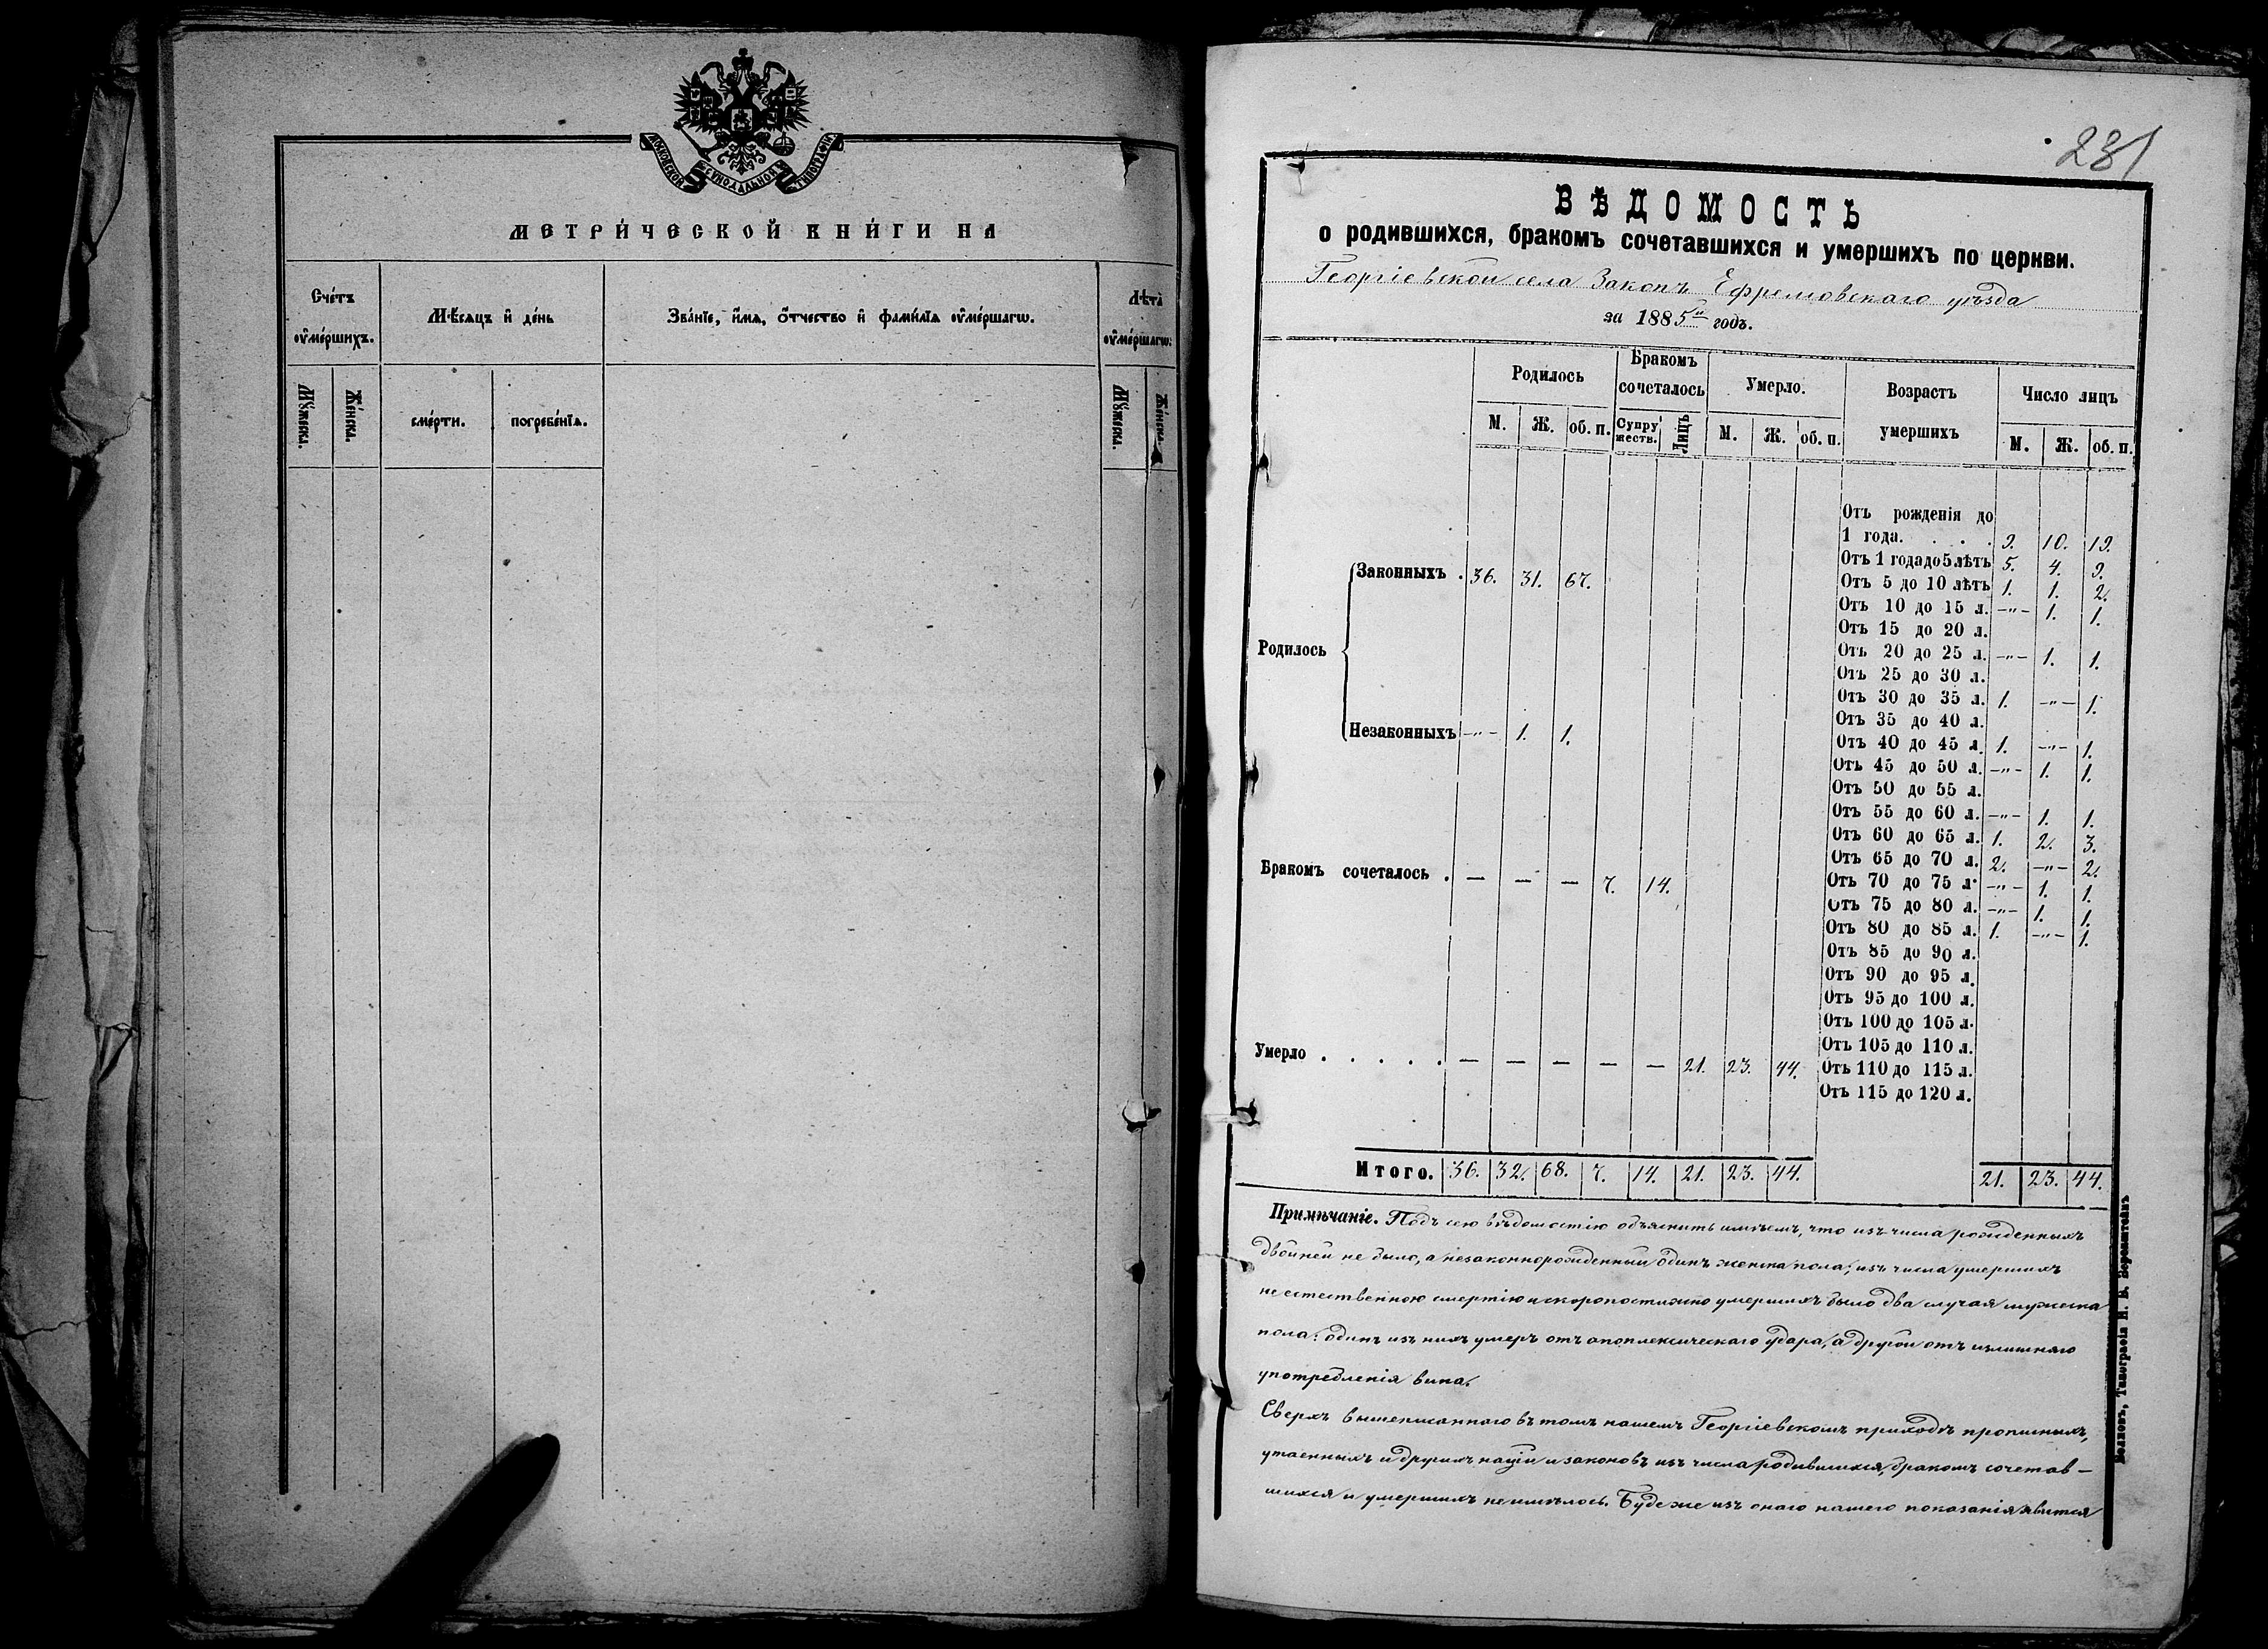 МОСКОВСКОЙ СѴНОДАЛЬНОЙ ТИПОГРАФІИ
МЕТРИ́ЧЕСКОЙ КНИ́ГИ НА
Сче́тъ оу҆ме́ршихъ.
Мѣ́сяцъ и҆ де́нь
Зва́нїе, и҆́мѧ, ѻ҆́тчество и҆ фами́лїѧ оу҆ме́ршагѡ.
Лѣ́та оу҆ме́ршагѡ.
Мꙋ́жеска.
Же́нска.
сме́рти.
погребе́нїѧ.
Мꙋ́жеска.
Же́нска.
231
ВѢДОМОСТЬ
о родившихся, бракомъ сочетавшихся и умершихъ по церкви.
Георгіевской села Закопъ Ефремовскаго уѣзда
за 1885й годъ.
Родилось
Бракомъ сочеталось
Умерло.
Возрастъ умершихъ
Число лицъ
М. Ж. об. п. Супружеств. Лицъ М. Ж. об. п. М. Ж. об. п.
Отъ рожденія до
1 года. . . . 9. 10. 19.
Отъ 1 года до 5 лѣтъ 5. 4. 9.
Родилось
Законныхъ . 36. 31. 67.
Отъ 5 до 10 лѣтъ 1. 1. 2.
Отъ 10 до 15 л. —"— 1. 1.
Отъ 15 до 20 л.
Отъ 20 до 25 л. —"— 1. 1.
Отъ 25 до 30 л.
Отъ 30 до 35 л. 1. —"— 1.
Отъ 35 до 40 л.
Незаконныхъ —"— 1. 1.
Отъ 40 до 45 л. 1. —"— 1.
Отъ 45 до 50 л. —"— 1. 1.
Отъ 50 до 55 л.
Отъ 55 до 60 л. —"— 1. 1.
Отъ 60 до 65 л. 1. 2. 3.
Отъ 65 до 70 л. 2. —"— 2.
Бракомъ сочеталось . — — — 7. 14.
Отъ 70 до 75 л. —"— 1. 1.
Отъ 75 до 80 л. —"— 1. 1.
Отъ 80 до 85 л. 1. —"— 1.
Отъ 85 до 90 л.
Отъ 90 до 95 л.
Отъ 95 до 100 л.
Отъ 100 до 105 л.
Отъ 105 до 110 л.
Умерло . . . . . — — — — — 21. 23. 44.
Отъ 110 до 115 л.
Отъ 115 до 120 л.
Итого. 36. 32. 68. 7. 14. 21. 23. 44. 21. 23. 44.
Примѣчаніе. Подъ сею вѣдомостію объяснить имѣемъ, что изъ числа рожденныхъ
двойней не было, а незаконнорожденный одинъ женска пола; изъ числа умершихъ
неестественною смертію и скоропостижно умершихъ было два случая мужеска
пола: одинъ изъ нихъ умеръ отъ апоплексическаго удара, а другой отъ излишняго
употребленія вина.
Сверхъ вышеписаннаго въ томъ нашемъ Георгіевскомъ приходѣ прописныхъ,
утаенныхъ и другихъ націи и законовъ изъ числа родившихся, бракомъ сочетав-
шихся и умершихъ не имѣлось. Буде же изъ онаго нашего показанія явится
Типографія